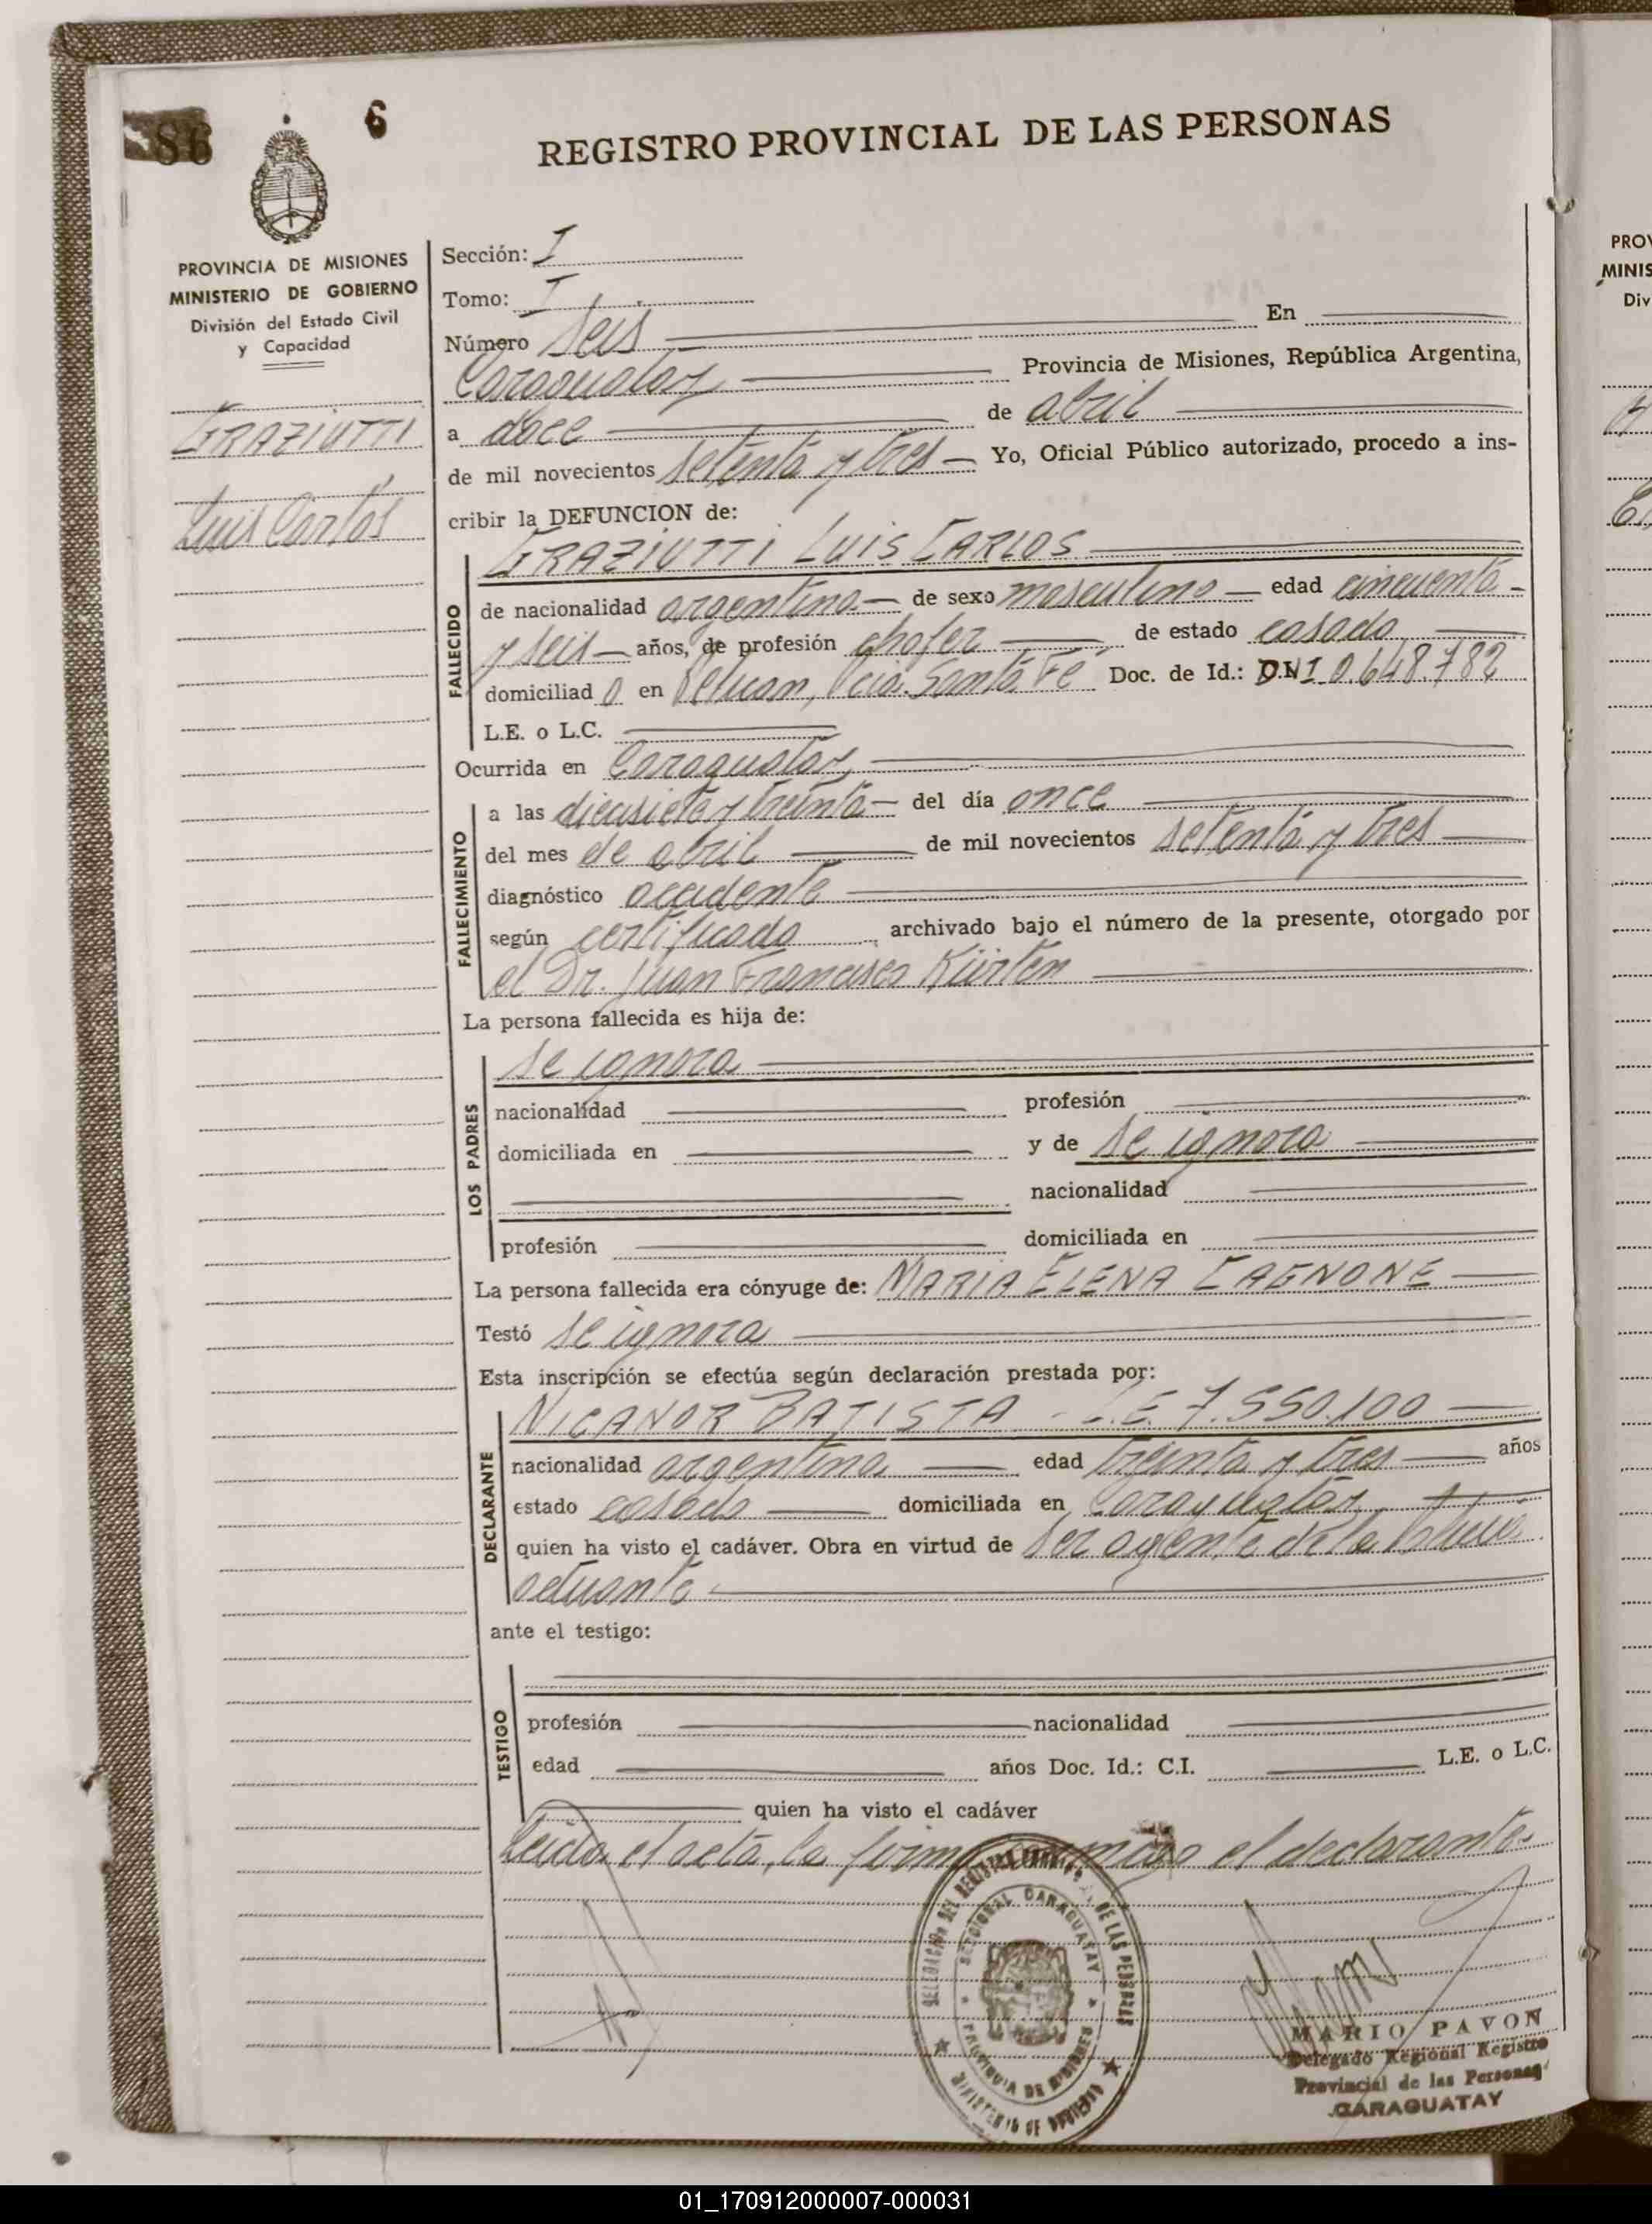 86
6
REGISTRO PROVINCIAL DE LAS PERSONAS
PROVINCIA DE MISIONES
MINISTERIO DE GOBIERNO
División del Estado Civil
y Capacidad
GRAZIUTTI
Luis Carlos
Sección: I
Tomo: I
Número Seis En
Caraguatay Provincia de Misiones, República Argentina,
a doce de abril
de mil novecientos setenta y tres Yo, Oficial Público autorizado, procedo a ins-
cribir la DEFUNCION de:
FALLECIDO
GRAZIUTTI LUIS CARLOS
de nacionalidad argentina de sexo masculino edad cincuenta
y seis años, de profesión chofer de estado casado
domiciliad o en Pcia. Santa Fé Doc. de Id.: D.N.I 0.648.782
L.E. o L.C.
Ocurrida en Caraguatay
FALLECIMIENTO
a las diecisiete y treinta del día once
del mes de abril de mil novecientos setenta y tres
diagnóstico accidente
según certificado archivado bajo el número de la presente, otorgado por
el Dr. Juan Francisco Kürten
La persona fallecida es hija de:
LOS PADRES
se ignora
nacionalidad profesión
domiciliada en y de se ignora
nacionalidad
profesión domiciliada en
La persona fallecida era cónyuge de: MARIA ELENA CAGNONE
Testó se ignora
Esta inscripción se efectúa según declaración prestada por:
DECLARANTE
NICANOR BATISTA - L.E. 7.550.100
nacionalidad argentina edad treinta y tres años
estado casado domiciliada en Caraguatay
quien ha visto el cadáver. Obra en virtud de ser agente de la
actuante
ante el testigo:
TESTIGO
profesión nacionalidad
edad años Doc. Id.: C.I. L.E. o L.C.
quien ha visto el cadáver
Leída el acta, la firma el declarante
DELEGACION DEL REGISTRO DE LAS PERSONAS
SECCIONAL CARAGUATAY
PROVINCIA DE MISIONES
MINISTERIO DE GOBIERNO
MARIO PAVON
Delegado Regional Registro
Provincial de las Personas
CARAGUATAY
PROV
MINIS
Div
01_170912000007-000031